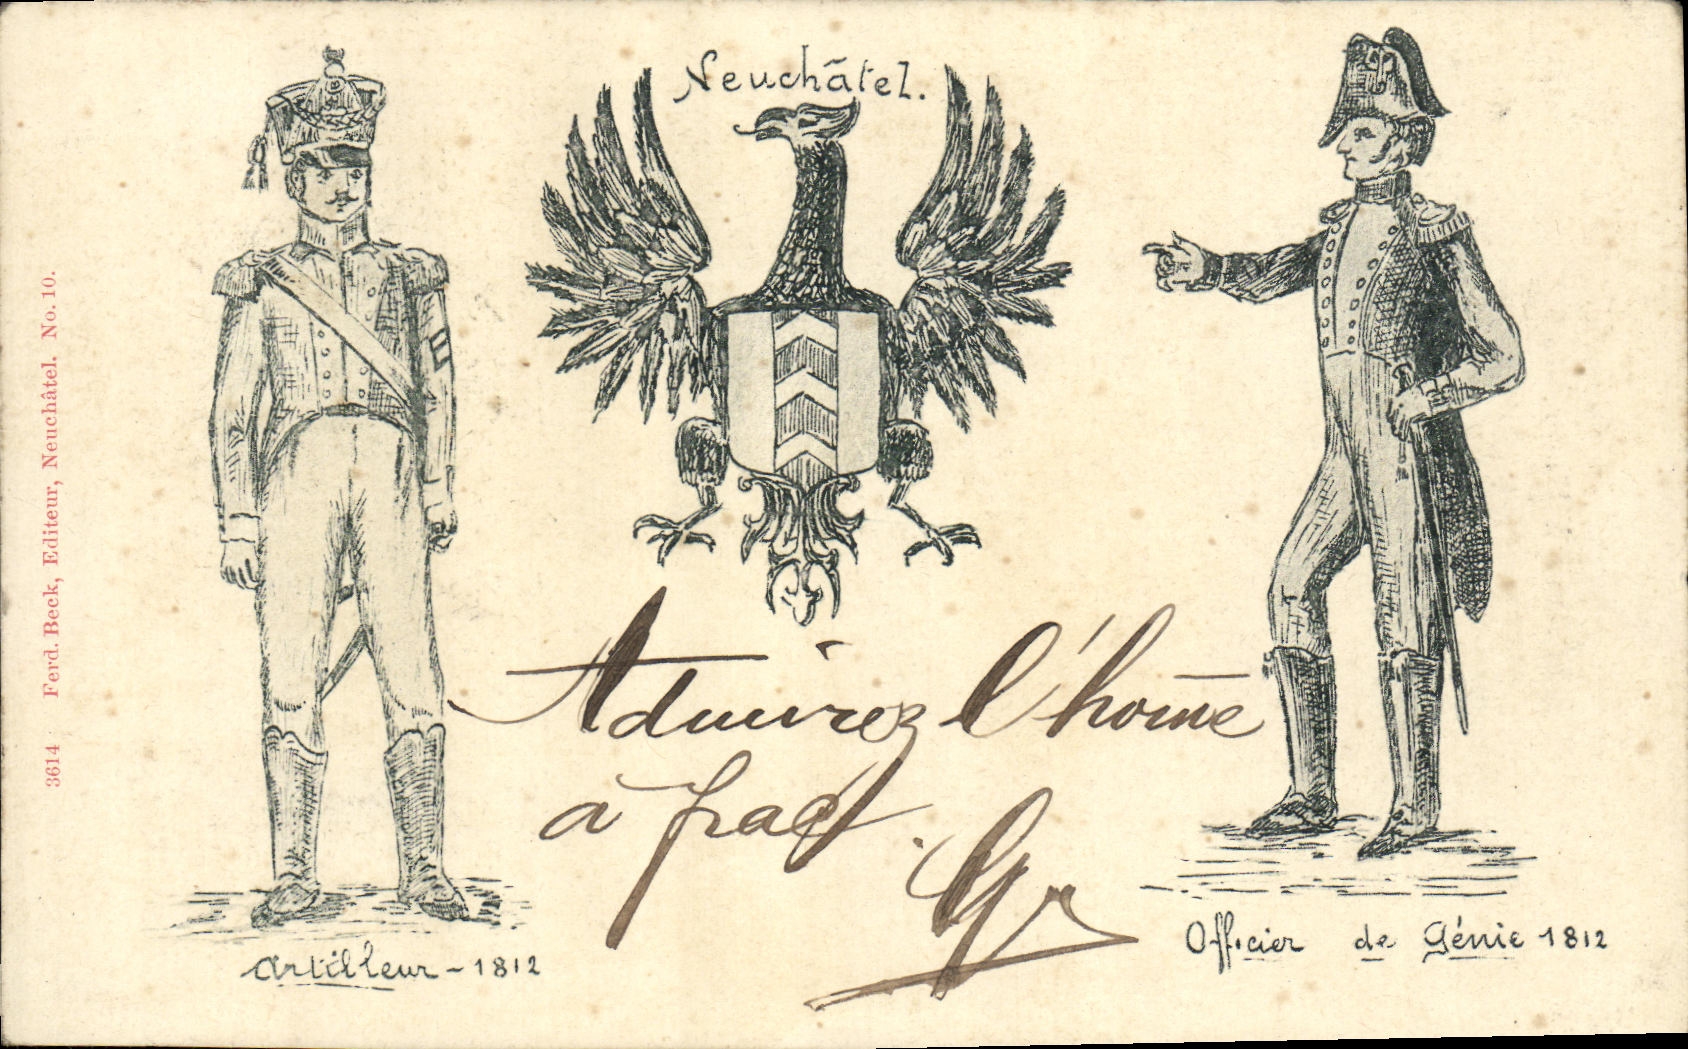 Neuchâtel.
3614 Ferd. Beck, Editeur, Neuchâtel. No. 10.
Admirez l'home
à frac.
Artilleur - 1812
Officier de Génie 1812